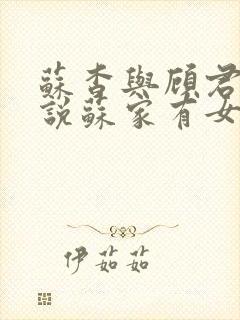 蘇杳與顧君
說蘇家有女
伊茹茹